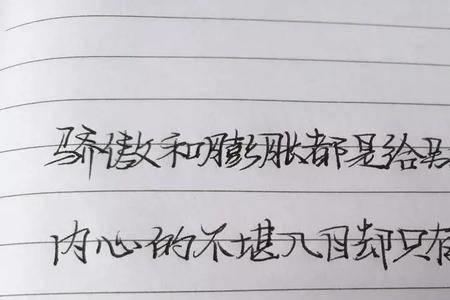 骄傲和膨胀都是给
内心的不堪入目却只有